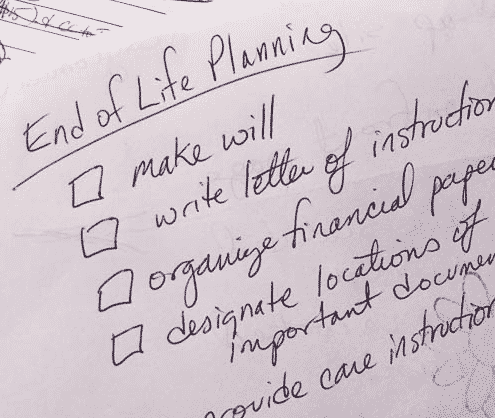 End of Life Planning
make will
write letter of instruction
organize financial pape
designate locations of
important documen
provide care instruction